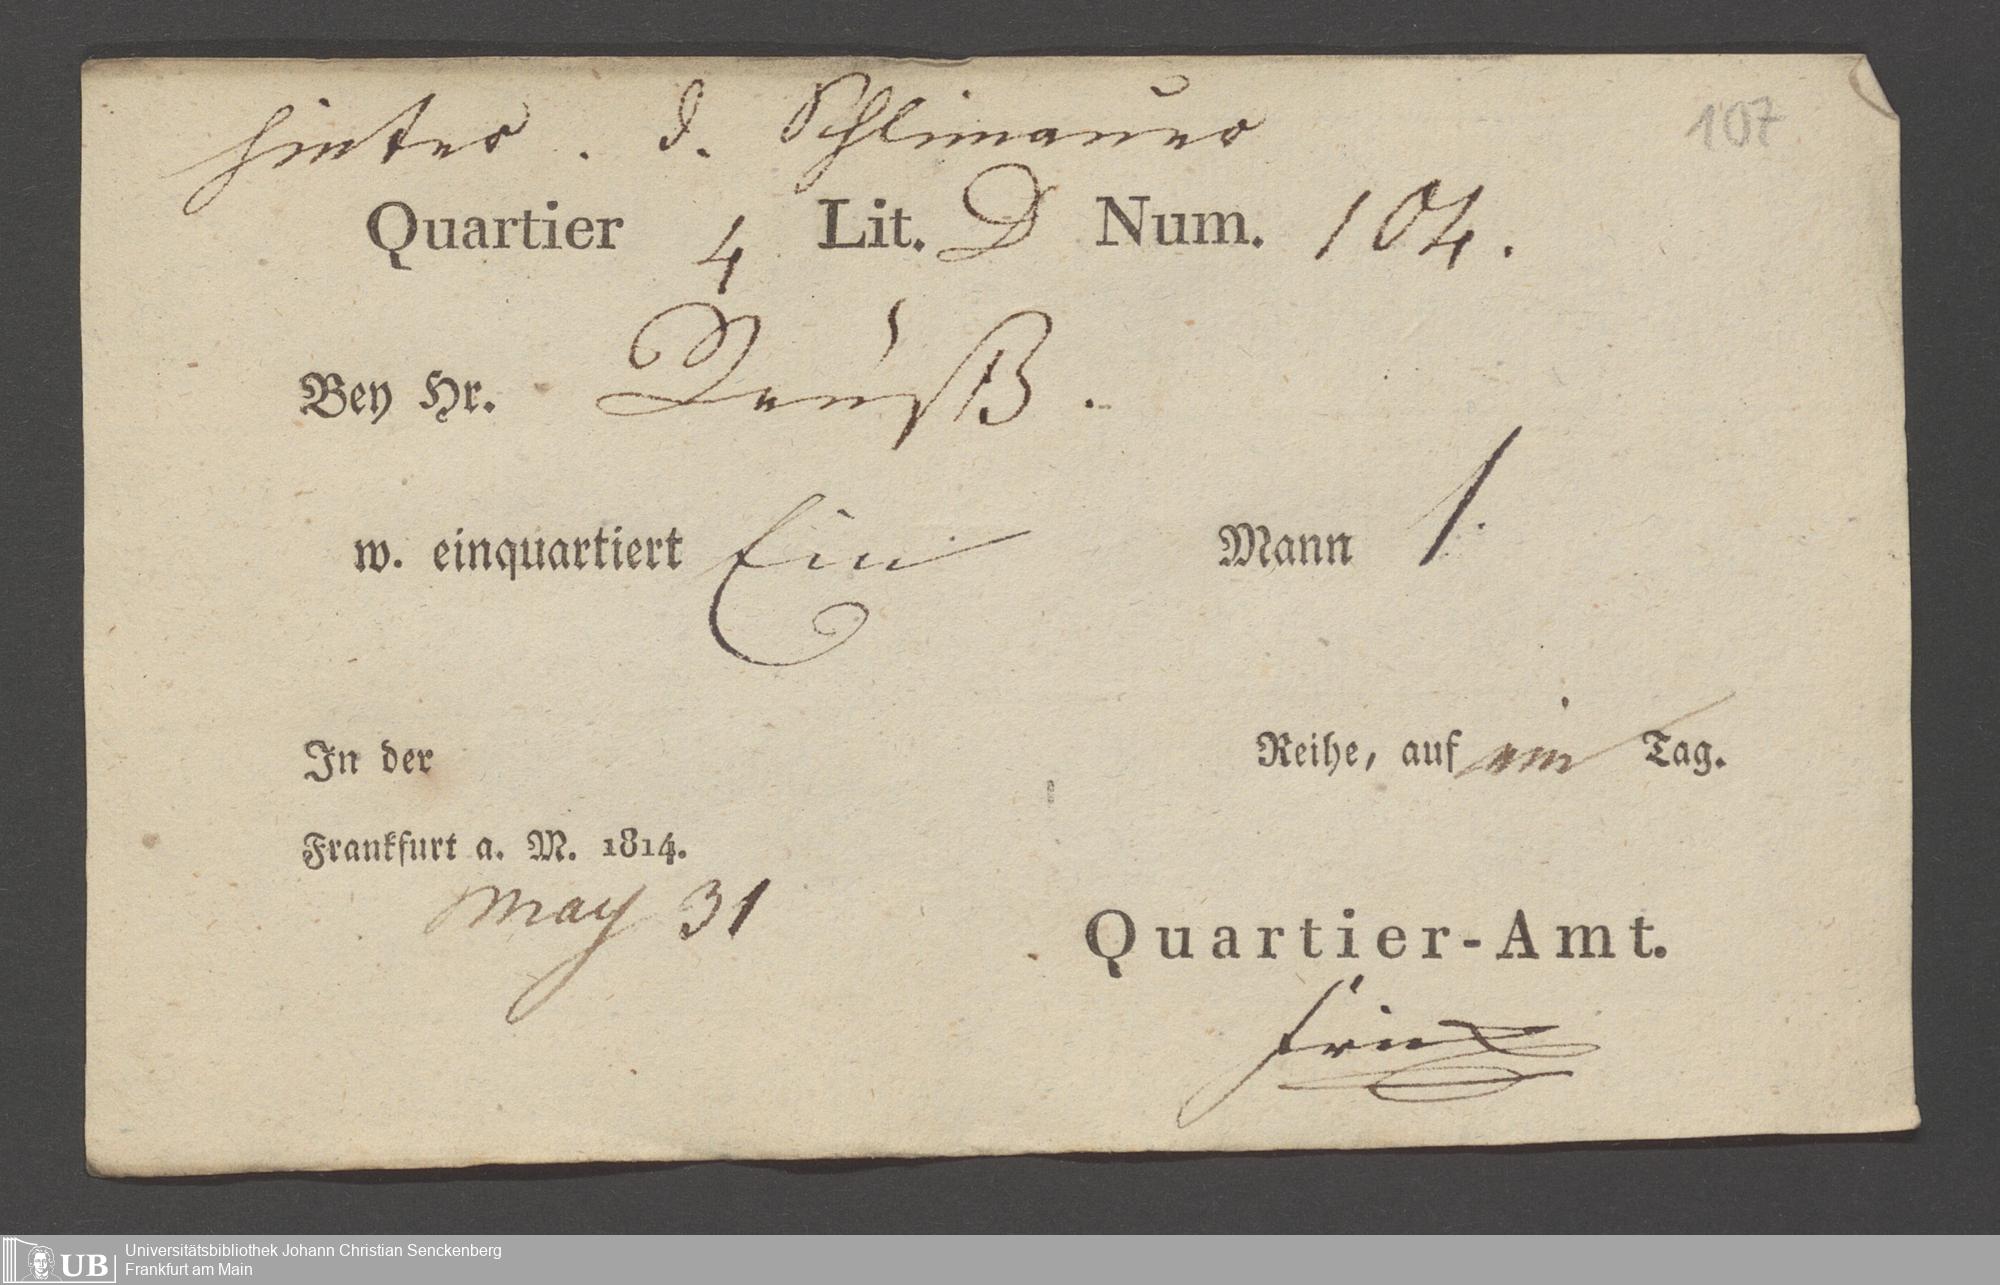 hinter. d. Schlimauer
107
Quartier 4 Lit. D Num. 104.
Bey Hr. .
w. einquartiert Ein Mann 1.
In der Reihe, auf ein Tag.
Frankfurt a. M. 1814.
May 31
Quartier-Amt.
UB Universitätsbibliothek Johann Christian Senckenberg
Frankfurt am Main